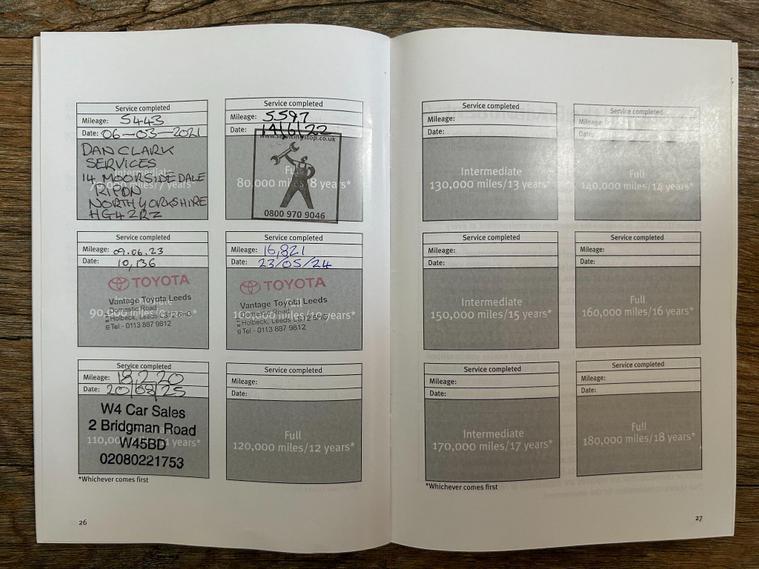 Service completed
Mileage: 5443
Date: 06-03-2021
DAN CLARK
SERVICES
14 MOORSIDE DALE
RIPON
NORTH YORKSHIRE
HG4 2RZ
Service completed
Mileage: 5597
Date: 14/6/22
80,000 miles/8 years*
0800 970 9046
Service completed
Mileage: 09.06.23
Date: 10,136
TOYOTA
Vantage Toyota Leeds
Tel - 0113 887 9812
Service completed
Mileage: 16,821
Date: 23/05/24
TOYOTA
Vantage Toyota Leeds
Tel - 0113 887 9812
Service completed
Mileage: 18,220
Date: 20/08/25
W4 Car Sales
2 Bridgman Road
W45BD
02080221753
Service completed
Mileage:
Date:
Full
120,000 miles/12 years*
*Whichever comes first
26
Service completed
Mileage:
Date:
Intermediate
130,000 miles/13 years*
Service completed
Mileage:
Date:
Full
140,000 miles/14 years*
Service completed
Mileage:
Date:
Intermediate
150,000 miles/15 years*
Service completed
Mileage:
Date:
Full
160,000 miles/16 years*
Service completed
Mileage:
Date:
Intermediate
170,000 miles/17 years*
Service completed
Mileage:
Date:
Full
180,000 miles/18 years*
*Whichever comes first
27